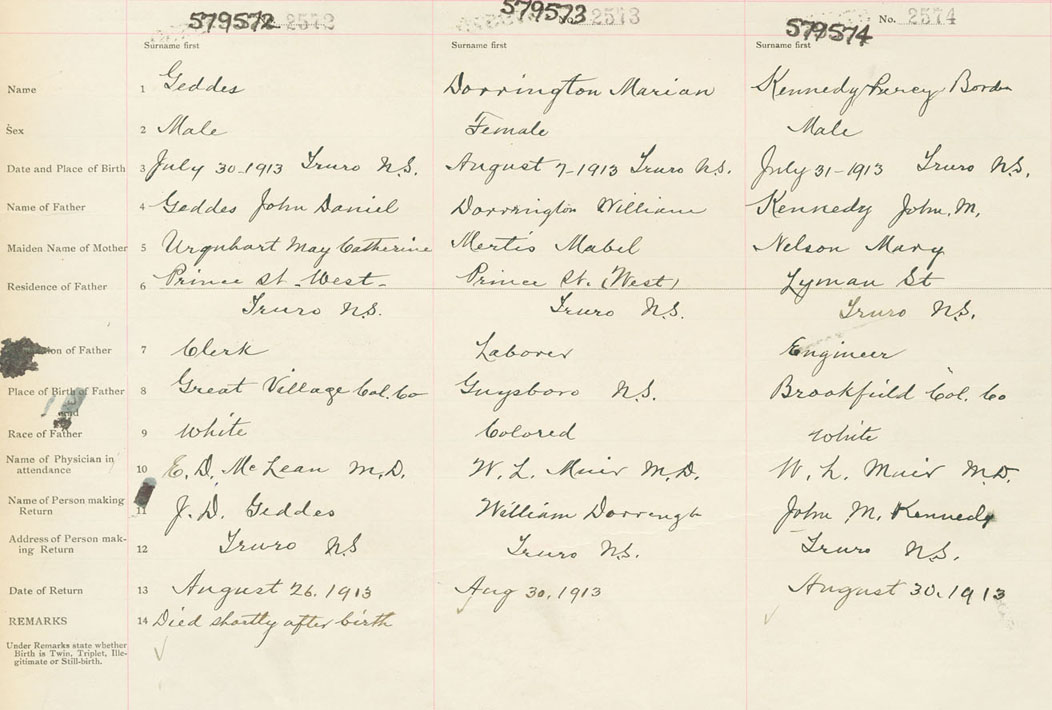 579572 2572 579573 No. 2573 579574 No. 2574
Surname first Surname first Surname first
Name 1 Geddes Dorrington Marian Kennedy Percy Borden
Sex 2 Male Female Male
Date and Place of Birth 3 July 30-1913 Truro N.S. August 7-1913 Truro N.S. July 31-1913 Truro N.S.
Name of Father 4 Geddes John Daniel Dorrington William Kennedy John. M.
Maiden Name of Mother 5 Urquhart May Catherine Mertis Mabel Nelson Mary
Residence of Father 6 Prince St. West- Prince St. (West) Lyman St
Truro N.S. Truro N.S. Truro N.S.
of Father 7 Clerk Laborer Engineer
Place of Birth of Father 8 Great Village Col. Co Guysboro N.S. Brookfield Col. Co
and
Race of Father 9 White Colored White
Name of Physician in
attendance 10 E. D. McLean M.D. W. L. Muir M.D. W. L. Muir M.D.
Name of Person making
Return 11 J. D. Geddes William John M. Kennedy
Address of Person mak-
ing Return 12 Truro N.S Truro N.S. Truro N.S.
Date of Return 13 August 26. 1913 Aug 30, 1913 August 30. 1913
REMARKS 14 Died shortly after birth
Under Remarks state whether
Birth is Twin, Triplet, Ille-
gitimate or Still-birth.